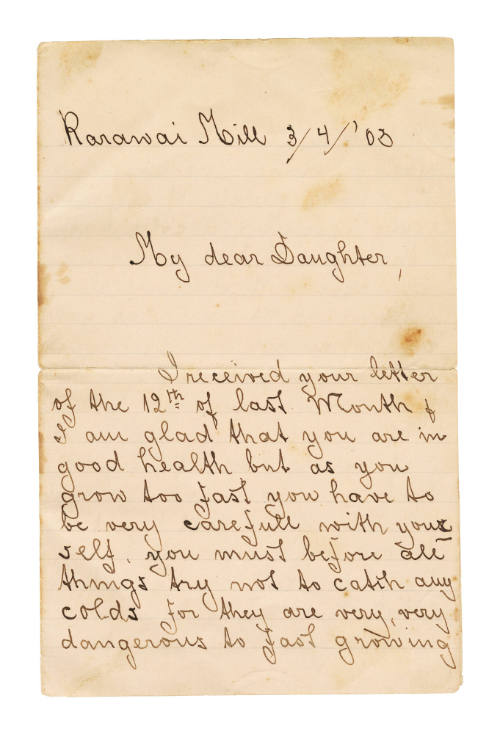 Rarawai Mill 3/4/'03
My dear Daughter,
I received your letter
of the 12th of last Month &
I am glad that you are in
good health but as you
grow too fast you have to
be very carefull with your
self, you must before all
things try not to catch any
colds for they are very, very
dangerous to fast growing